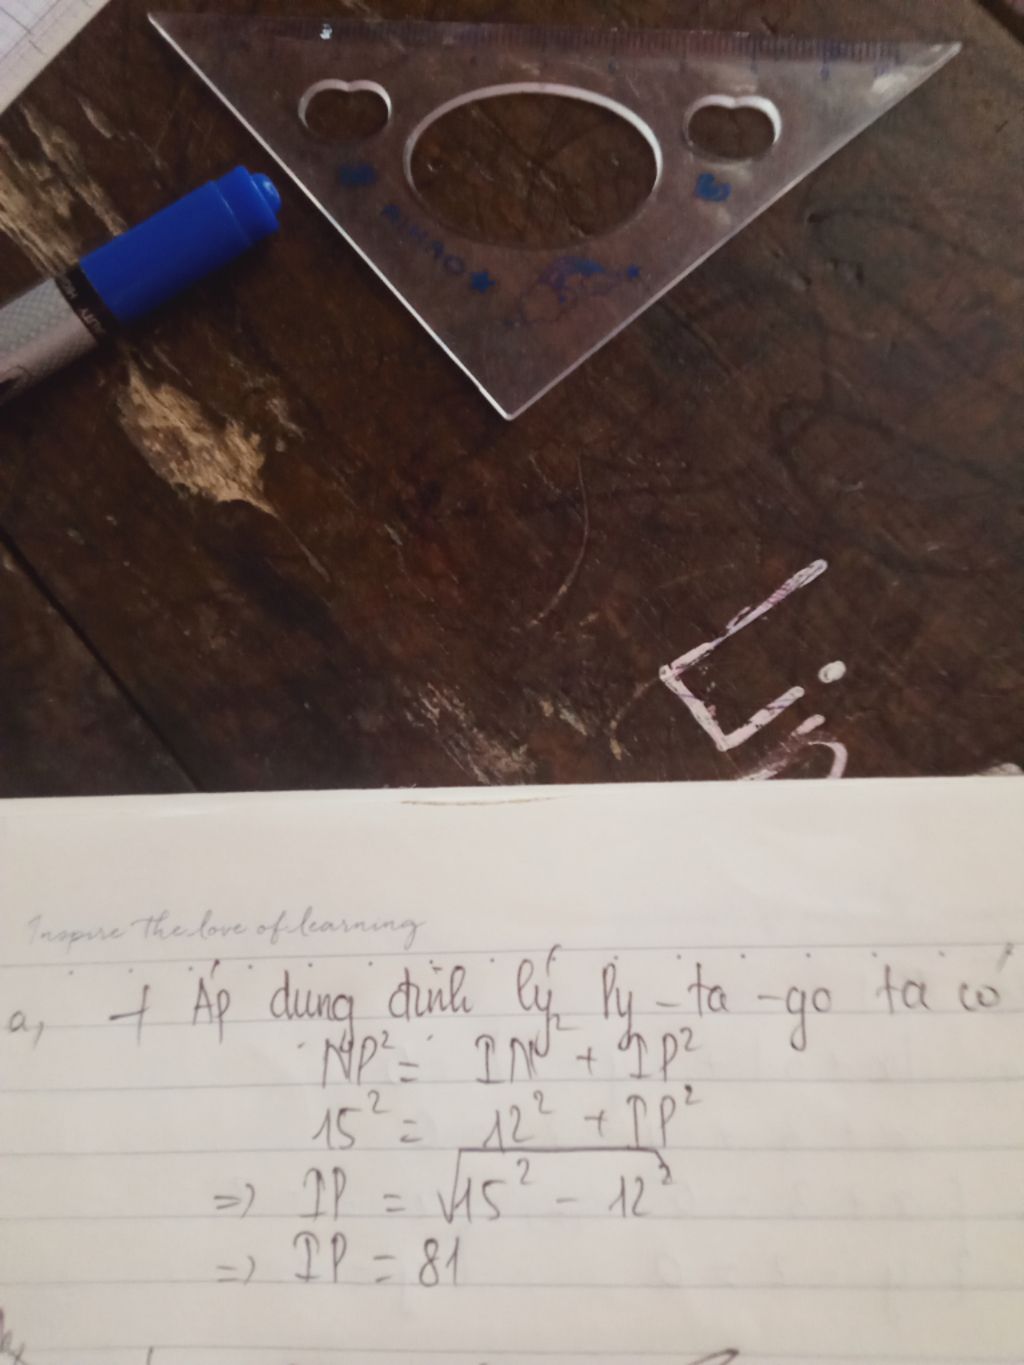 Inspire the love of learning
a, + Áp dụng định lý Py-ta-go ta có
NP² = IN² + IP²
15² = 12² + IP²
=> IP = √15² - 12²
=> IP = 81